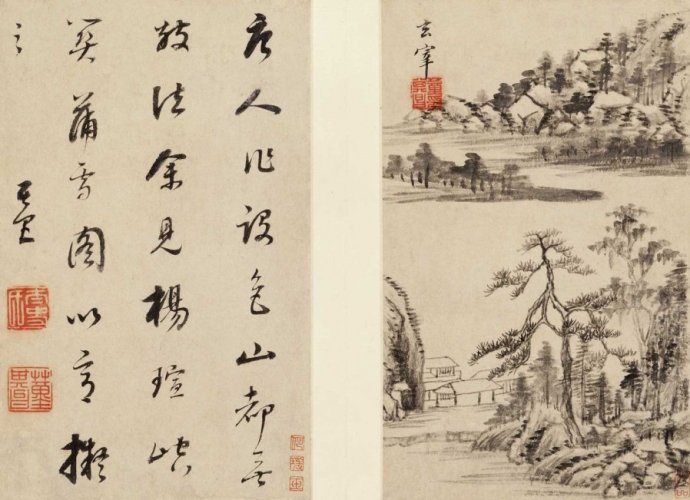 唐人作設色山都無
皴法余見楊瑄峒
關蒲雪圖以意擬
之
玄宰
玄宰